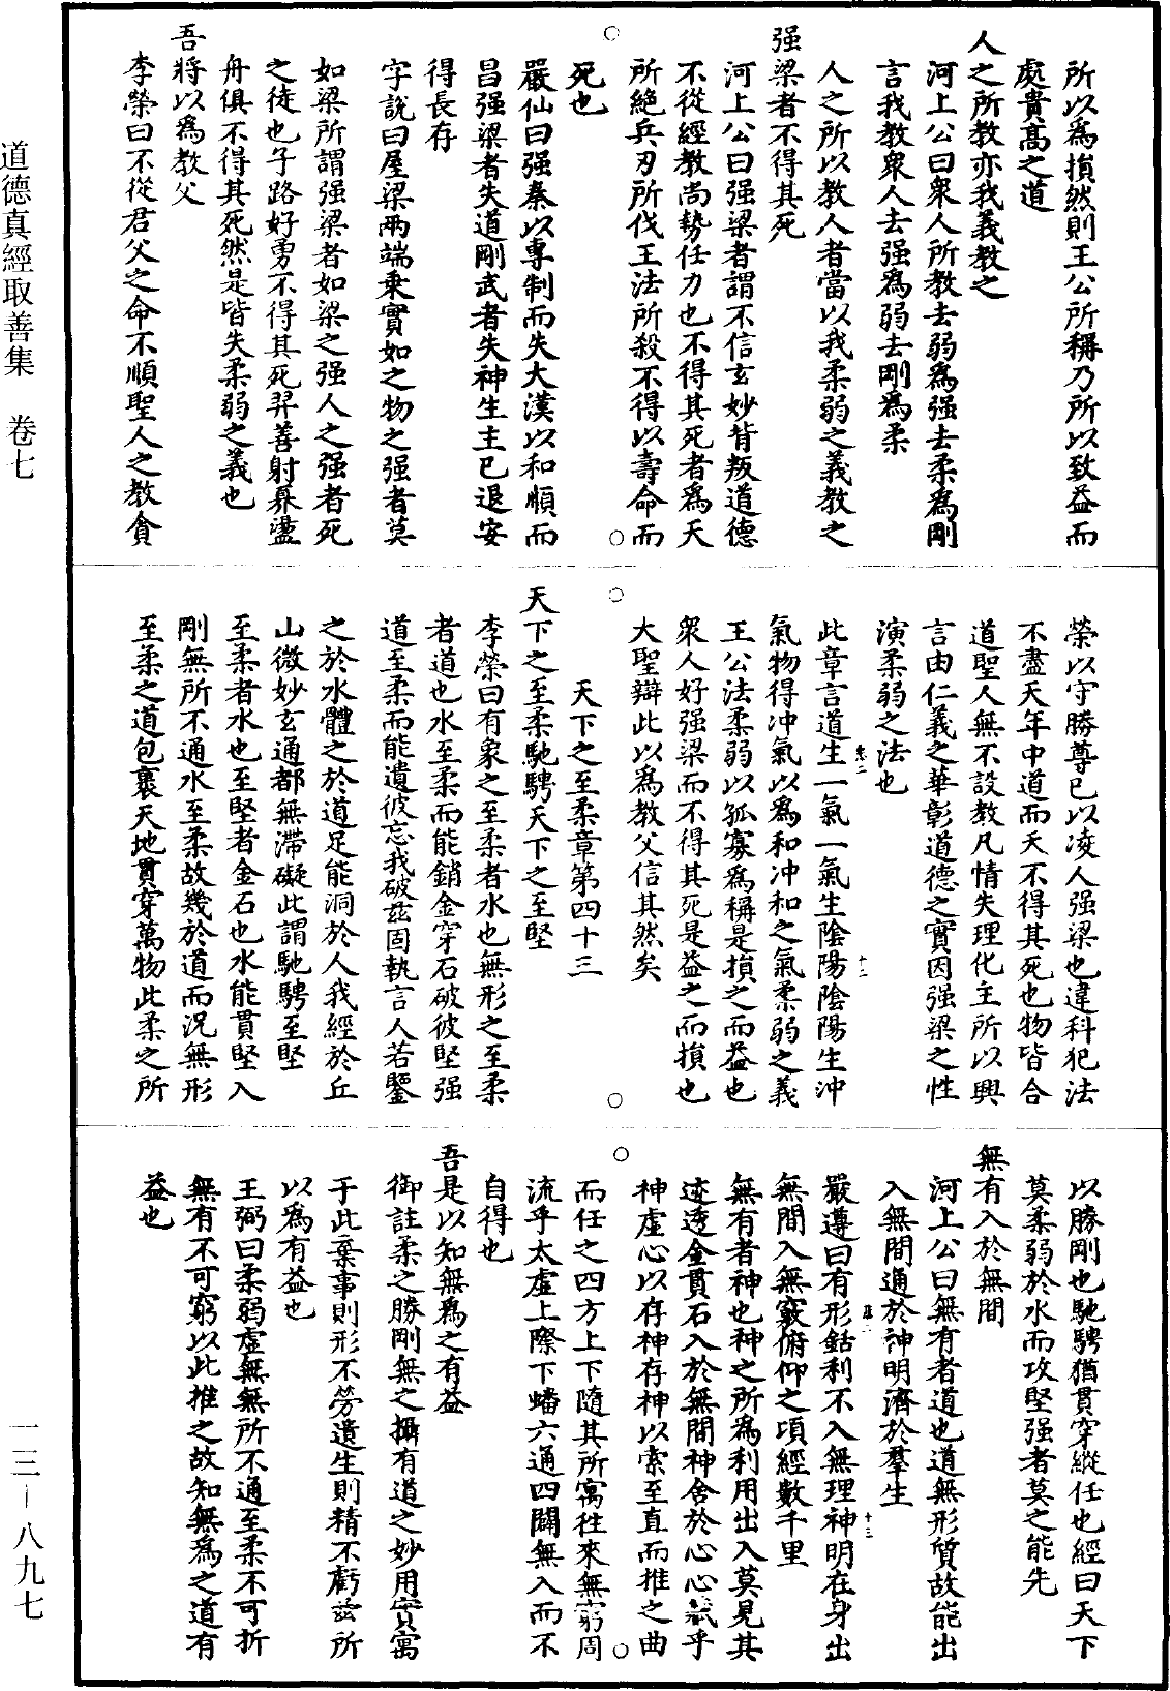 所以為損然則王公所稱乃所以致益而
處貴高之道
人之所教亦我義教之
河上公曰衆人所教去弱為强去柔為剛
言我教衆人去强為弱去剛為柔
人之所以教人者當以我柔弱之義教之
强梁者不得其死
河上公曰强梁者謂不信玄妙背叛道德
不從經教尚勢任力也不得其死者為天
所絶兵刃所伐王法所殺不得以壽命而
死也
嚴仙曰强秦以專制而失大漢以和順而
昌强梁者失道剛武者失神生主已退安
得長存
字說曰屋梁兩端乗實如之物之强者莫
如梁所謂强梁者如梁之强人之强者死
之徒也子路好勇不得其死羿善射奡盪
舟俱不得其死然是皆失柔弱之義也
吾將以為教父
李榮曰不從君父之命不順聖人之教貪
榮以守勝尊已以凌人强梁也違科犯法
不盡天年中道而夭不得其死也物皆合
道聖人無不設教凡情失理化主所以興
言由仁義之華彰道德之實因强梁之性
演柔弱之法也
此章言道生一氣一氣生陰陽陰陽生沖
氣物得沖氣以為和沖和之氣柔弱之義
王公法柔弱以孤寡為稱是損之而益也
衆人好强梁而不得其死是益之而損也
大聖辯此以為教父信其然矣
天下之至柔章第四十三
天下之至柔馳騁天下之至堅
李榮曰有象之至柔者水也無形之至柔
者道也水至柔而能銷金穿石破彼堅强
道至柔而能遣彼忘我破兹固執言人若鑒
之於水體之於道足能洞於人我經於丘
山微妙玄通都無滯礙此謂馳騁至堅
至柔者水也至堅者金石也水能貫堅入
剛無所不通水至柔故幾於道而況無形
至柔之道包裹天地貫穿萬物此柔之所
以勝剛也馳騁猶貫穿縱任也經曰天下
莫柔弱於水而攻堅强者莫之能先
無有入於無間
河上公曰無有者道也道無形質故能出
入無間通於神明濟於羣生
嚴遵曰有形銛利不入無理神明在身出
無間入無竅俯仰之頃經數千里
無有者神也神之所為利用出入莫見其
迹透金貫石入於無間神舍於心心藏乎
神虛心以存神存神以索至直而推之曲
而任之四方上下隨其所寓往來無窮周
流乎太虛上際下蟠六通四闢無入而不
自得也
吾是以知無為之有益
御註柔之勝剛無之攝有道之妙用實寓
于此棄事則形不勞遺生則精不虧兹所
以為有益也
王弼曰柔弱虛無無所不通至柔不可折
無有不可窮以此推之故知無為之道有
益也
道德真經取善集 卷七
一三—八九七